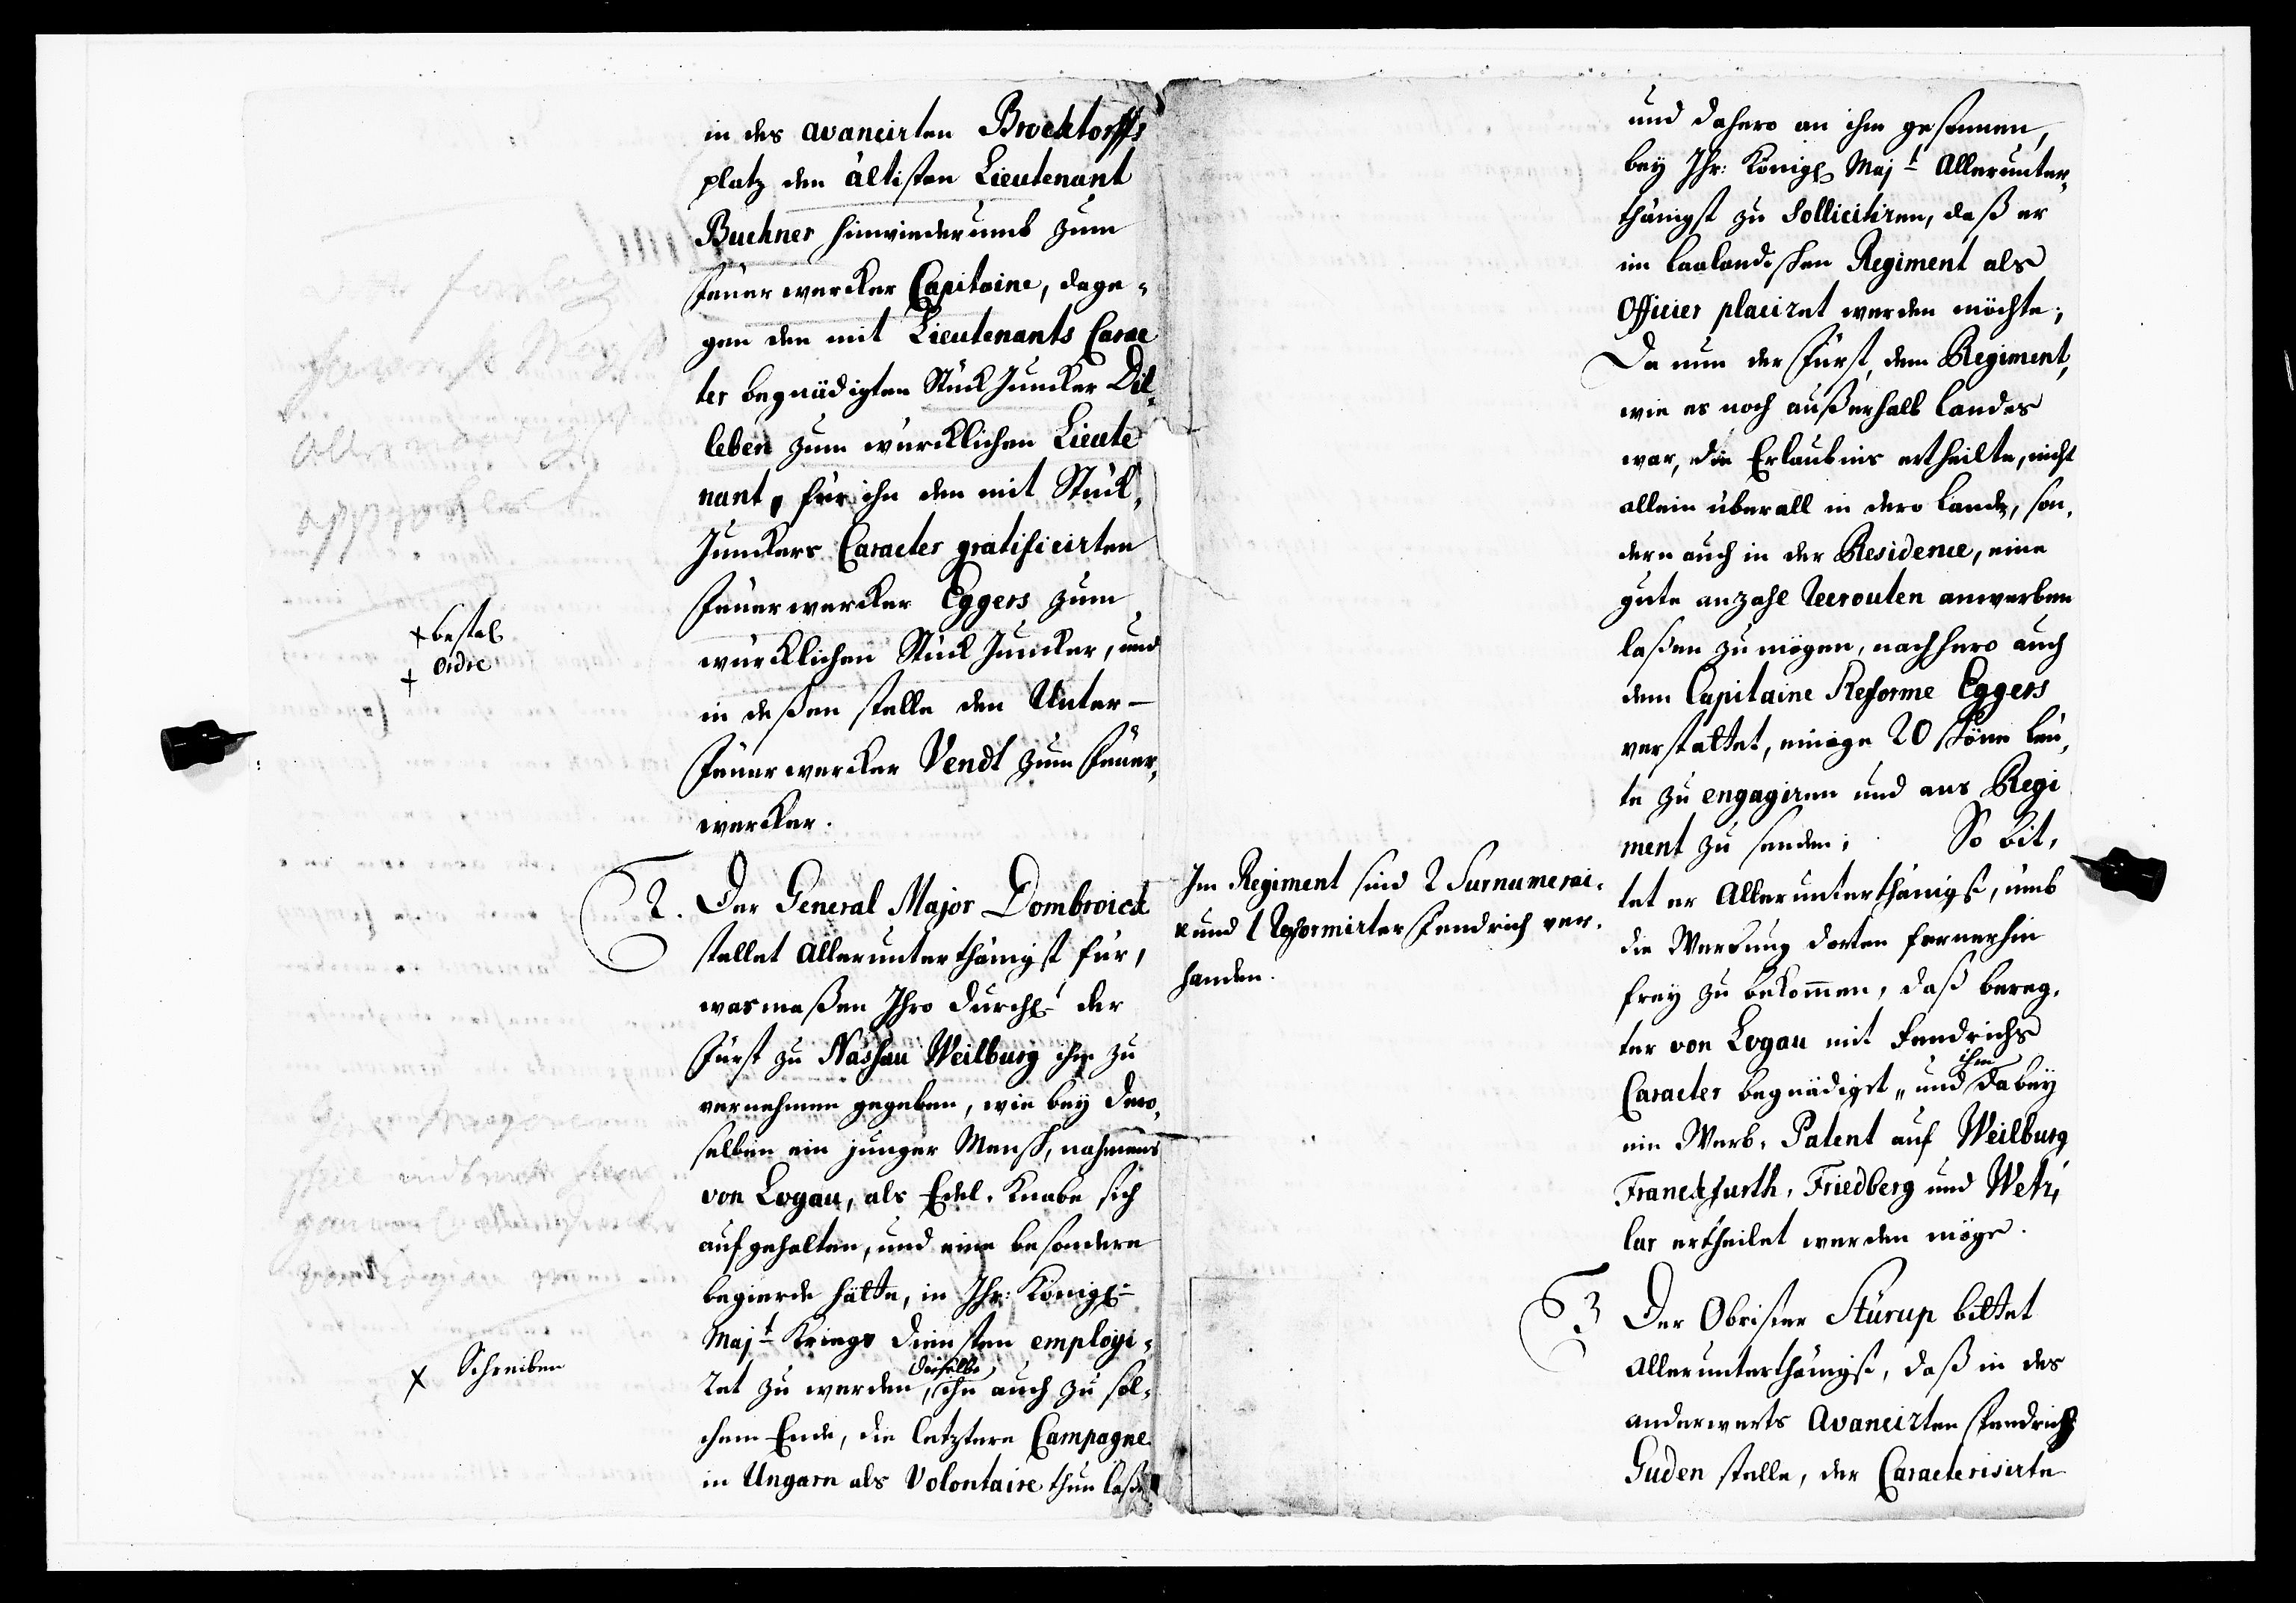 in des avancirten Brocktorffs
platz den ältisten Lieutenant
Buchner hinwiederumb zum
Feuerwercker Capitaine, dage¬
gen den mit Lieutenants Carac
ter begnädigten Stück Juncker Dit¬
leben zum würcklichen Lieute
nant, für ihn den mit Stück¬
Junckers Caracter gratificirten
Feuerwercker Eggers zum
würcklichen Stück Juncker, und
in deßen stelle den Unter-
Feuerwercker Vendt zum Feuer¬
wercker.
Allerunderdgst
approbert
x bestal
ordre
+
2. Der General Major Dombroick
stellet Allerunterthänigst für,
wasmaßen Ihro Durchl der
Fürst zu Nassau Weilburg ihm zu
vernehmen gegeben, wie bey Dero¬
selben ein junger Mensch, nahmens
von Logau, als Edel-Knabe sich
aufgehalten, und eine besondere
begierde hätte, in Ihr: Königl
Majt Kriegs Diensten employi¬
ret zu werden, dieselbe ihn auch zu sol¬
chem Ende, die letztere Campagne
in Ungarn als Volontaire thun laßen
x Schreiben
und dahero an ihm gesonnen,
bey Ihr: Königl Majt Allerunter¬
thänigst zu sollicitiren, daß er
im Laalandischen Regiment als
Officier placiret werden möchte;
Da nun der Fürst, dem Regiment,
wie es noch außerhalb Landes
war, die Erlaubnis ertheilte, nicht
allein überall in dero Lande, son¬
dern auch in der Residence, eine
gute anzahl Recrouten anwerben
laßen zu mögen, nachhero auch
dem Capitaine Reforme Eggers
verstattet, einige 20 schöne Leu¬
te zu engagiren und ans Regi
ment zu senden; So bit¬
tet er Allerunterthänigst, umb
die Werbung dorten fernerhin
frey zu bekommen, daß bereg¬
ter von Logau mit Fendrichs
Caracter begnädiget, und ihm dabey
ein Werb-Patent auf Weilburg
Franckfurth, Friedberg und Wetz¬
lar ertheilet werden möge.
Im Regiment sind 2 Surnumerai¬
r und 1 Reformirter Fendrich ver¬
handen.
3 Der Obrister Stürup bittet
Allerunterthänigst, daß in des
anderwerts Avancirten Fendrich
Guden stelle, der Caracterisirte